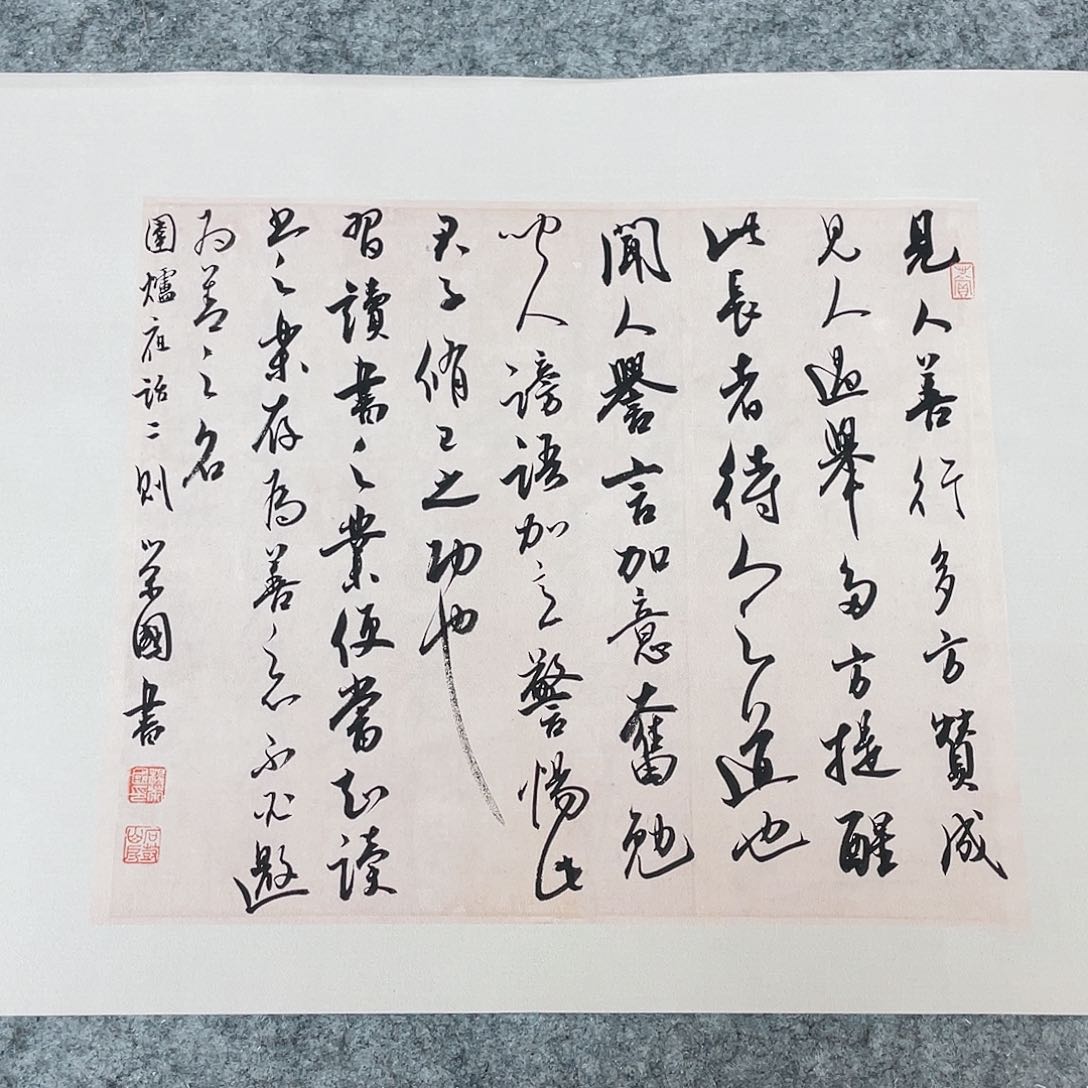 見人善行多方賛成
見人過舉多方提醒
此長者待人之道也
聞人譽言加意奮勉
聞人謗語加意警惕此
君子修己之功也
習讀書之業便當知讀
書之樂存為善之心不必邀
為善之名
圍爐夜話二則 榮國書